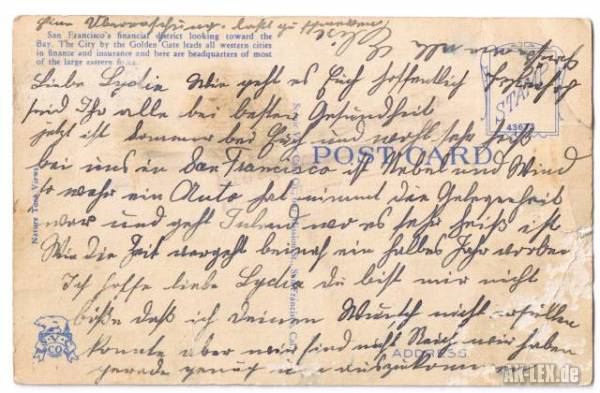 eine Überraschung
San Francisco's financial district looking toward the
Bay. The City by the Golden Gate leads all western cities
in finance and insurance and here are headquarters of most
of the large eastern
STAMP
43673
Liebe Lydia Wie geht es Euch hoffentlich
seid Ihr alle bei bester Gesundheit
jetzt ist Sommer bei Euch und wohl sehr heiß
POST CARD
bei uns in San Francisco ist Nebel und Wind
wer ein Auto hat nimmt die Gelegenheit
war und geht wo es sehr heiß ist
Wie die Zeit vergeht beinah ein halbes Jahr vorbei
Ich hoffe liebe Lydia du bist mir nicht
böße daß ich deinen Wunsch nicht erfüllen
konnte aber wir sind nicht Reich wir haben
gerade genug um auszukommen
ADDRESS
Nature Tone Views
San Francisco, Ca
V.
CO
AK-LEX.de